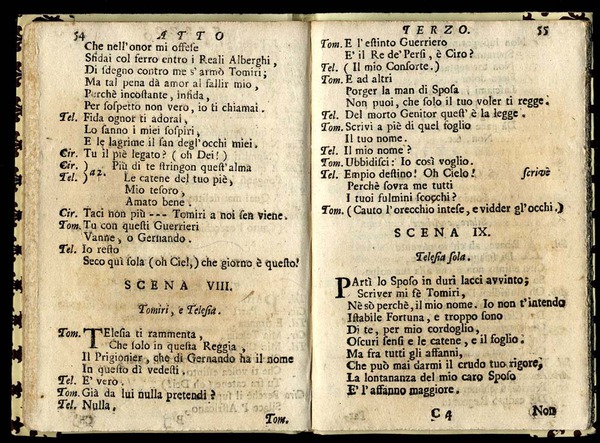 54 ATTO
Che nell'onor mi offese
Sfidai col ferro entro i Reali Alberghi,
Di sdegno contro me s'armò Tomiri;
Ma tal pena dà amor al fallir mio,
Perchè incostante, infida,
Per sospetto non vero, io ti chiamai.
Tel. Fida ognor ti adorai,
Lo sanno i miei sospiri,
E le lagrime il san degl'occhi miei.
Cir. Tu il piè legato? (oh Dei!)
Cir. ) Più di te stringon quest'alma
Tel. ) a2. Le catene del tuo piè,
Mio tesoro,
Amato bene.
Cir. Taci non più --- Tomiri a noi sen viene.
Tom. Tu con questi Guerrieri
Vanne, o Gernando.
Tel. Io resto
Seco quì sola (oh Ciel,) che giorno è questo!
SCENA VIII.
Tomiri, e Telesia.
Tom. TElesia ti rammenta,
Che solo in questa Reggia,
Il Prigionier, che di Gernando ha il nome
In questo dì vedesti.
Tel. E' vero.
Tom. Già da lui nulla pretendi?
Tel. Nulla.
Tom.
TERZO. 55
Tom. E l'estinto Guerriero
E' il Re de' Persi, è Ciro?
Tel. (Il mio Consorte.)
Tom. E ad altri
Porger la man di Sposa
Non puoi, che solo il tuo voler ti regge.
Tel. Del morto Genitor quest' è la legge.
Tom. Scrivi a piè di quel foglio
Il tuo nome.
Tel. Il mio nome?
Tom. Ubbidisci: Io così voglio.
Tel. Empio destino! Oh Cielo! scrive
Perchè sovra me tutti
I tuoi fulmini scocchi?
Tom. (Cauto l'orecchio intese, e vidder gl'occhi.)
SCENA IX.
Telesia sola.
PArtì lo Sposo in duri lacci avvinto;
Scriver mi fè Tomiri,
Nè sò perchè, il mio nome. Io non t'intendo
Istabile Fortuna, e troppo sono
Di te, per mio cordoglio,
Oscuri sensi e le catene, e il foglio.
Ma fra tutti gli affanni,
Che può mai darmi il crudo tuo rigore,
La lontananza del mio caro Sposo
E' l'affanno maggiore.
C 4 Non